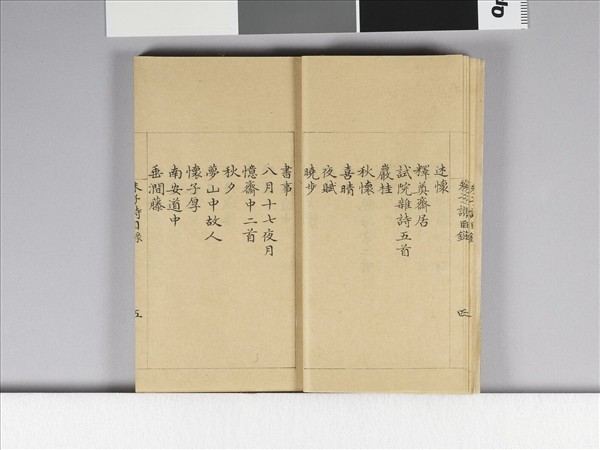 述懷
釋奠齋居
試院雜詩五首
巖桂
秋懷
喜晴
夜賦
曉步
書事
八月十七夜月
憶齋中二首
秋夕
夢山中故人
懷子厚
南安道中
垂澗藤
朱子詩目錄
五